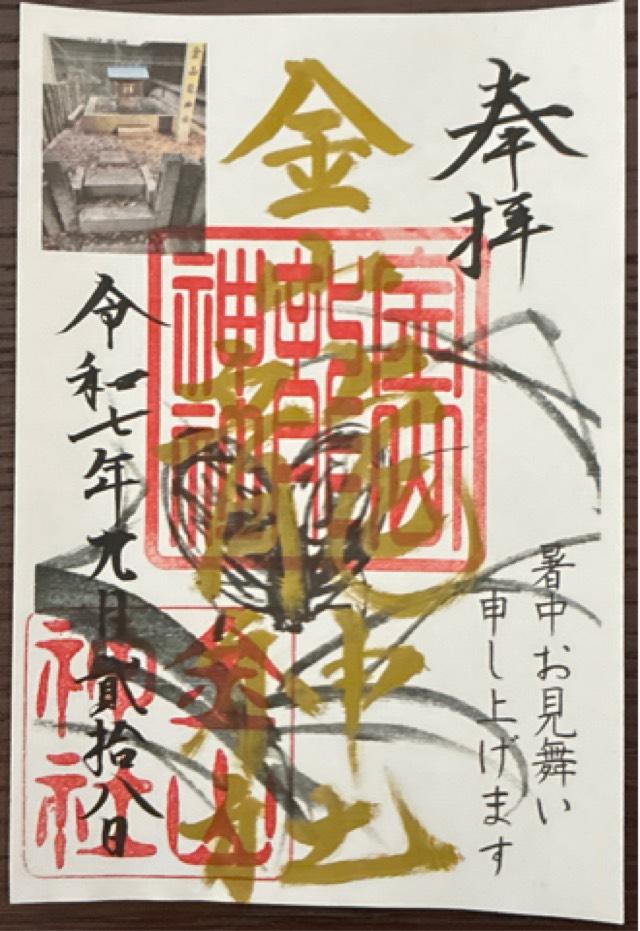 奉拝
暑中お見舞い
申し上げます
金山龍神社
金山
神社
令和七年九月貳拾八日